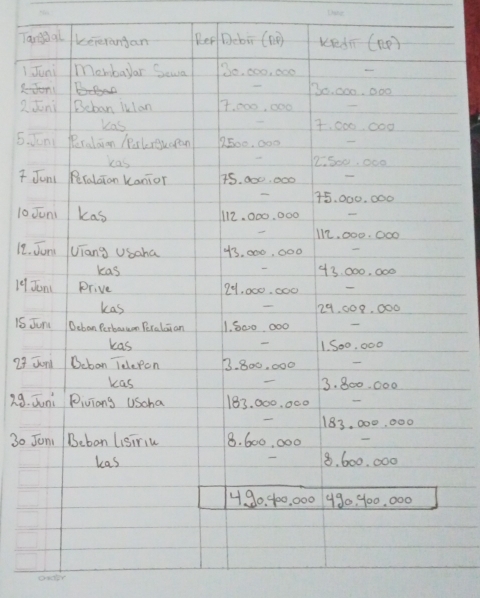 Tanggal Keterangan Ref Debit (RP) Kredit (RP)
1 Juni Membayar Sewa 30.000.000 -
2 Juni Beban - 30.000.000
2 Juni Beban Iklan 7.000.000 -
kas - 7.000.000
5. Juni Peralatan /Perlengkapan 2500.000 -
kas - 2.500.000
7 Juni Peralatan kantor 75.000.000 -
- 75.000.000
10 Juni kas 112.000.000 -
- 112.000.000
12. Juni Utang Usaha 43.000.000 -
kas - 43.000.000
14 Juni Prive 29.000.000 -
kas - 29.000.000
15 Juni Beban Perbaikan Peralatan 1.500.000 -
kas - 1.500.000
27 Juni Beban Telepon 3.800.000 -
kas - 3.800.000
29. Juni Piutang Usaha 183.000.000 -
- 183.000.000
30 Juni Beban listrik 8.600.000 -
kas - 8.600.000
490.400.000 490.400.000